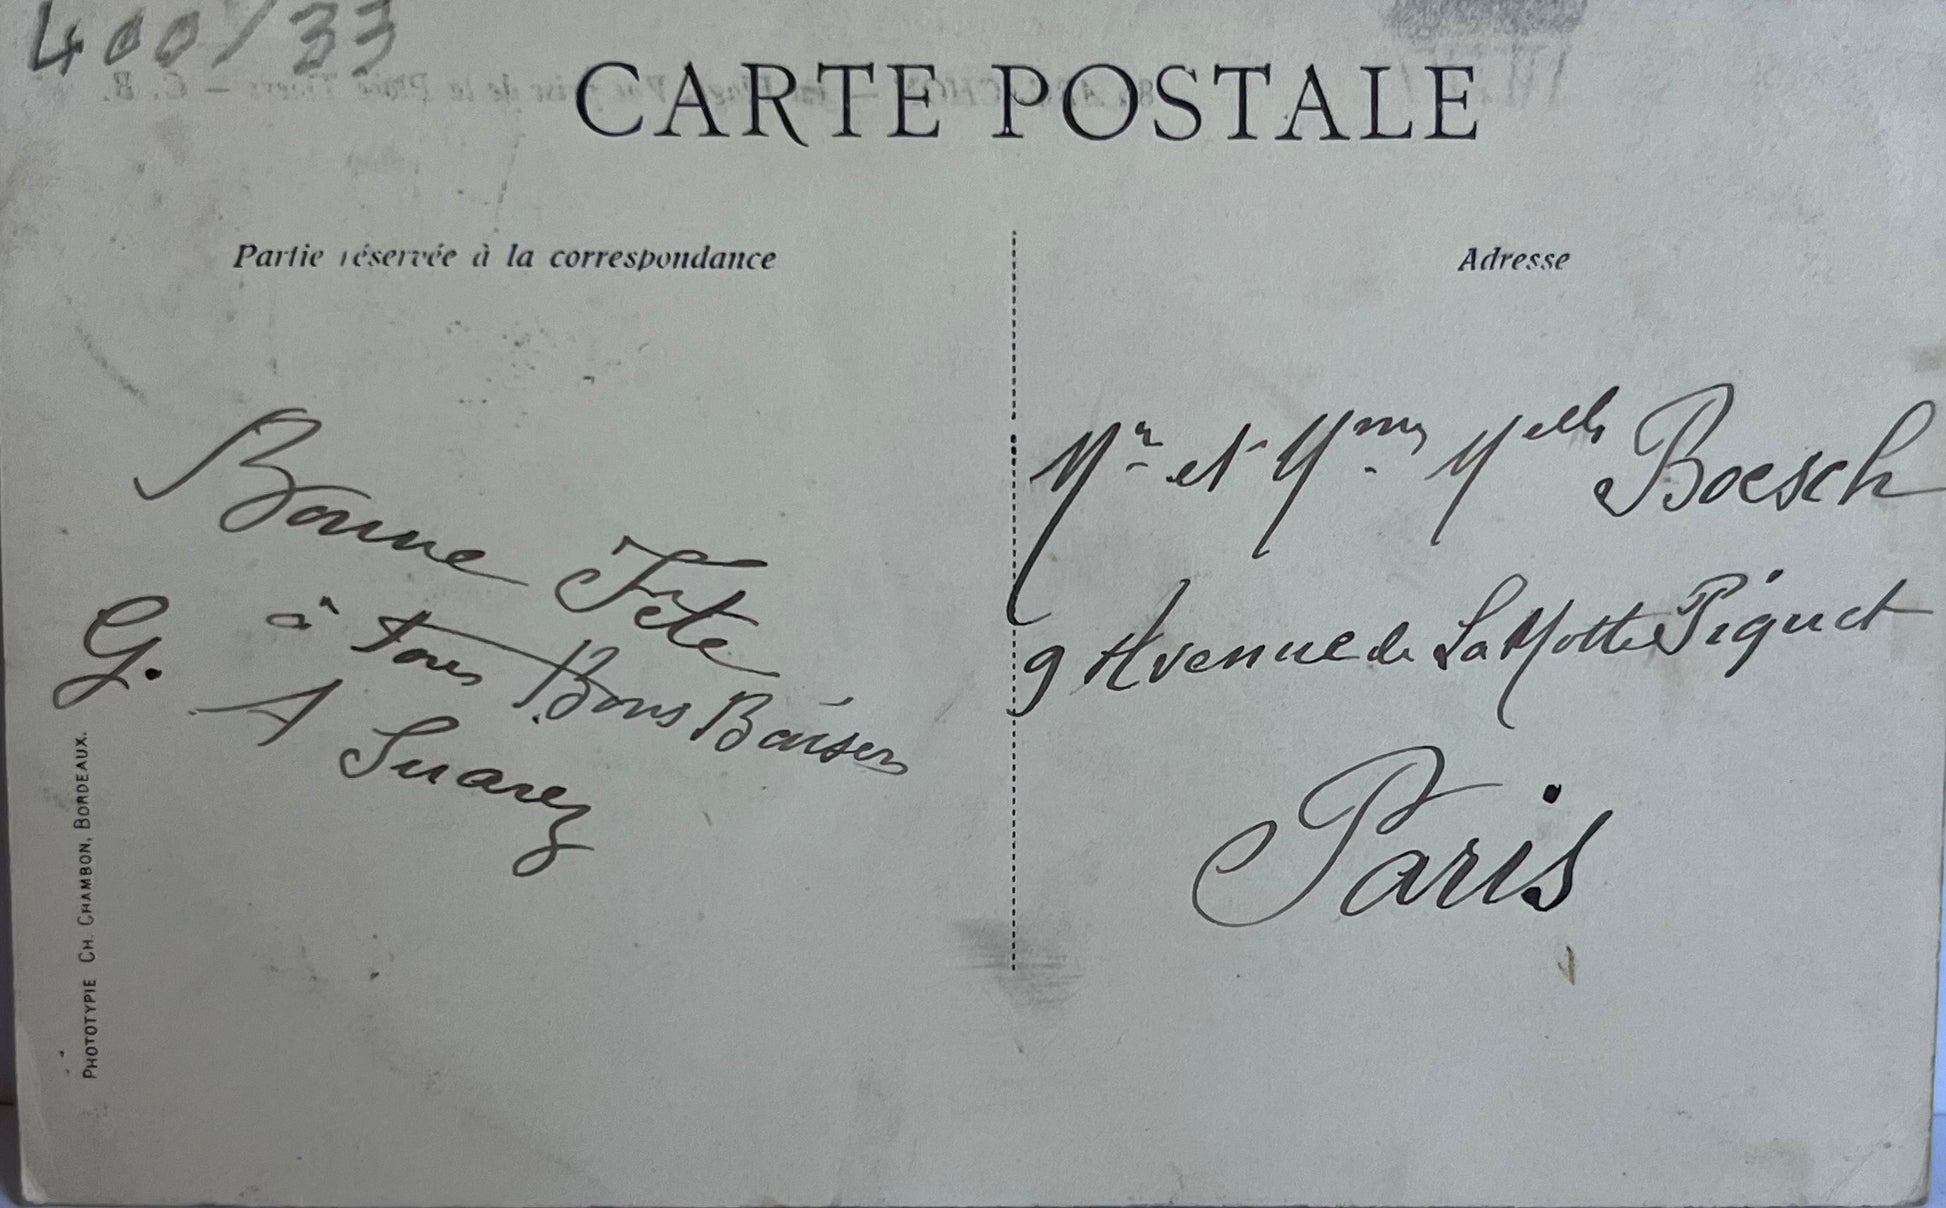 400/33
CARTE POSTALE
Partie réservée à la correspondance
Bonne Fête
à tous Bons Baisers
G. A Suarez
PHOTOTYPIE CH. CHAMBON, BORDEAUX.
Adresse
Mr et Mme Melle Boesch
9 Avenue de La Motte Piquet
Paris